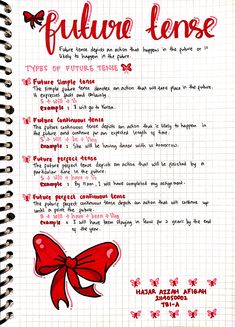 future tense
Future tense depicts an action that happen in the future or is
likely to happen in the future.
TYPES OF FUTURE TENSE
Future simple tense
The simple future tense denotes an action that will take place in the future.
It expresses facts and certainty.
S + will + V1
example : I will go to Korea.
Future continuous tense
The future continuous tense depicts an action that is likely to happen in
the future and continue for an expected length of time.
S + will + be + Ving
Example : She will be having dinner with us tomorrow.
Future perfect tense
The future perfect tense depicts an action that will be finished by a
particular time in the future.
S + will + have +
Example : By 11am, I will have completed my assignment.
Future perfect continuous tense
The future perfect continuous tense depicts an action that will continue up
until a point the future.
S + will + have + been + Ving
Example : I will have been staying in for 2 years by the end
of the year.
HAJAR AIZAH AFIQAH
TBI-A